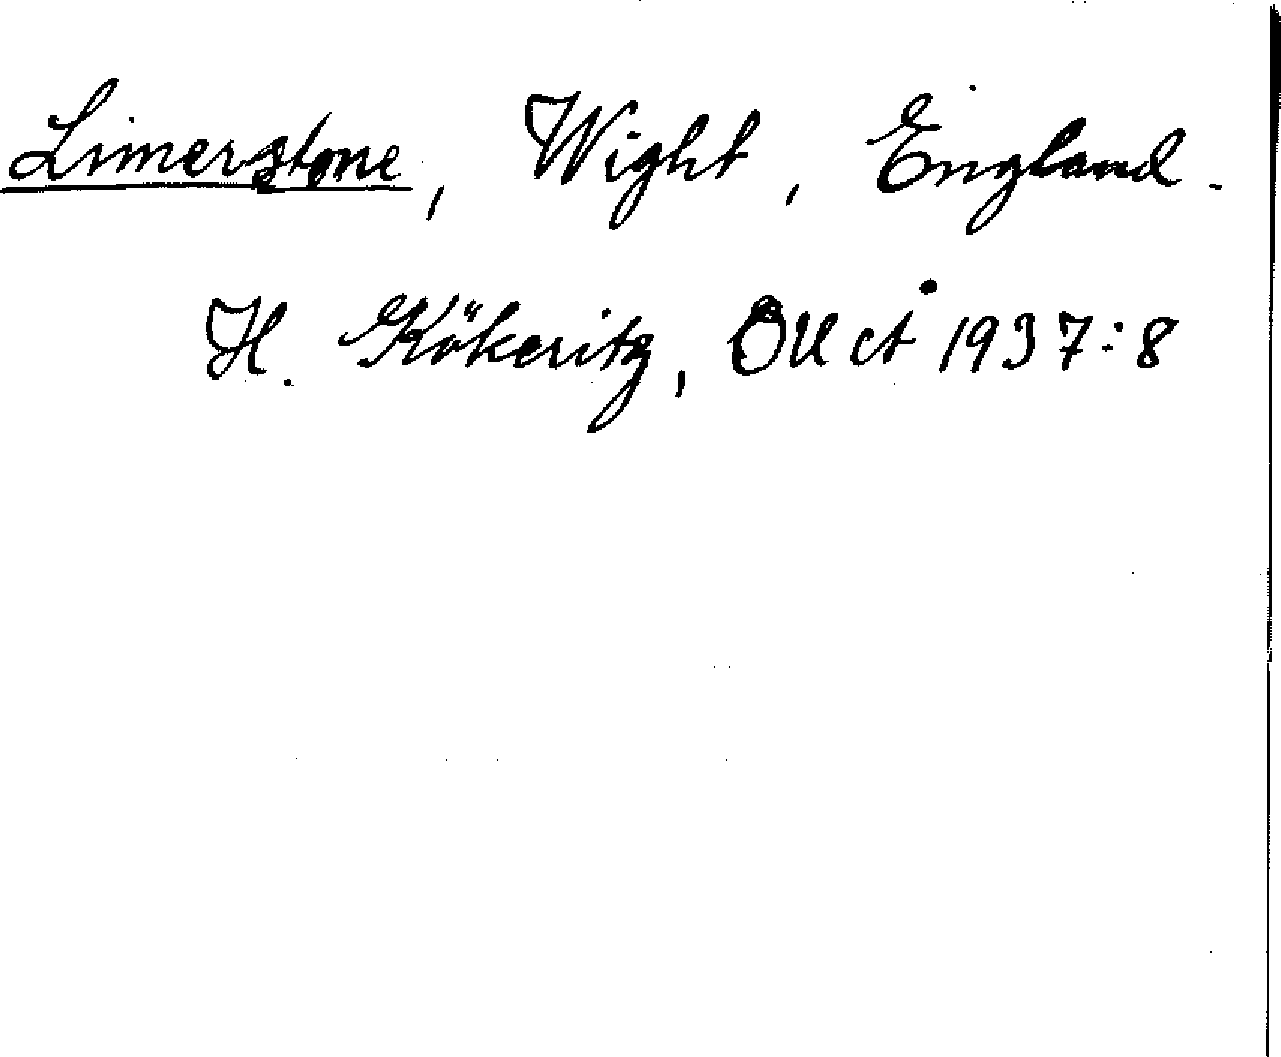 Limerstone, Wight, England.
H. Kökeritz, OUÅ 1937:8